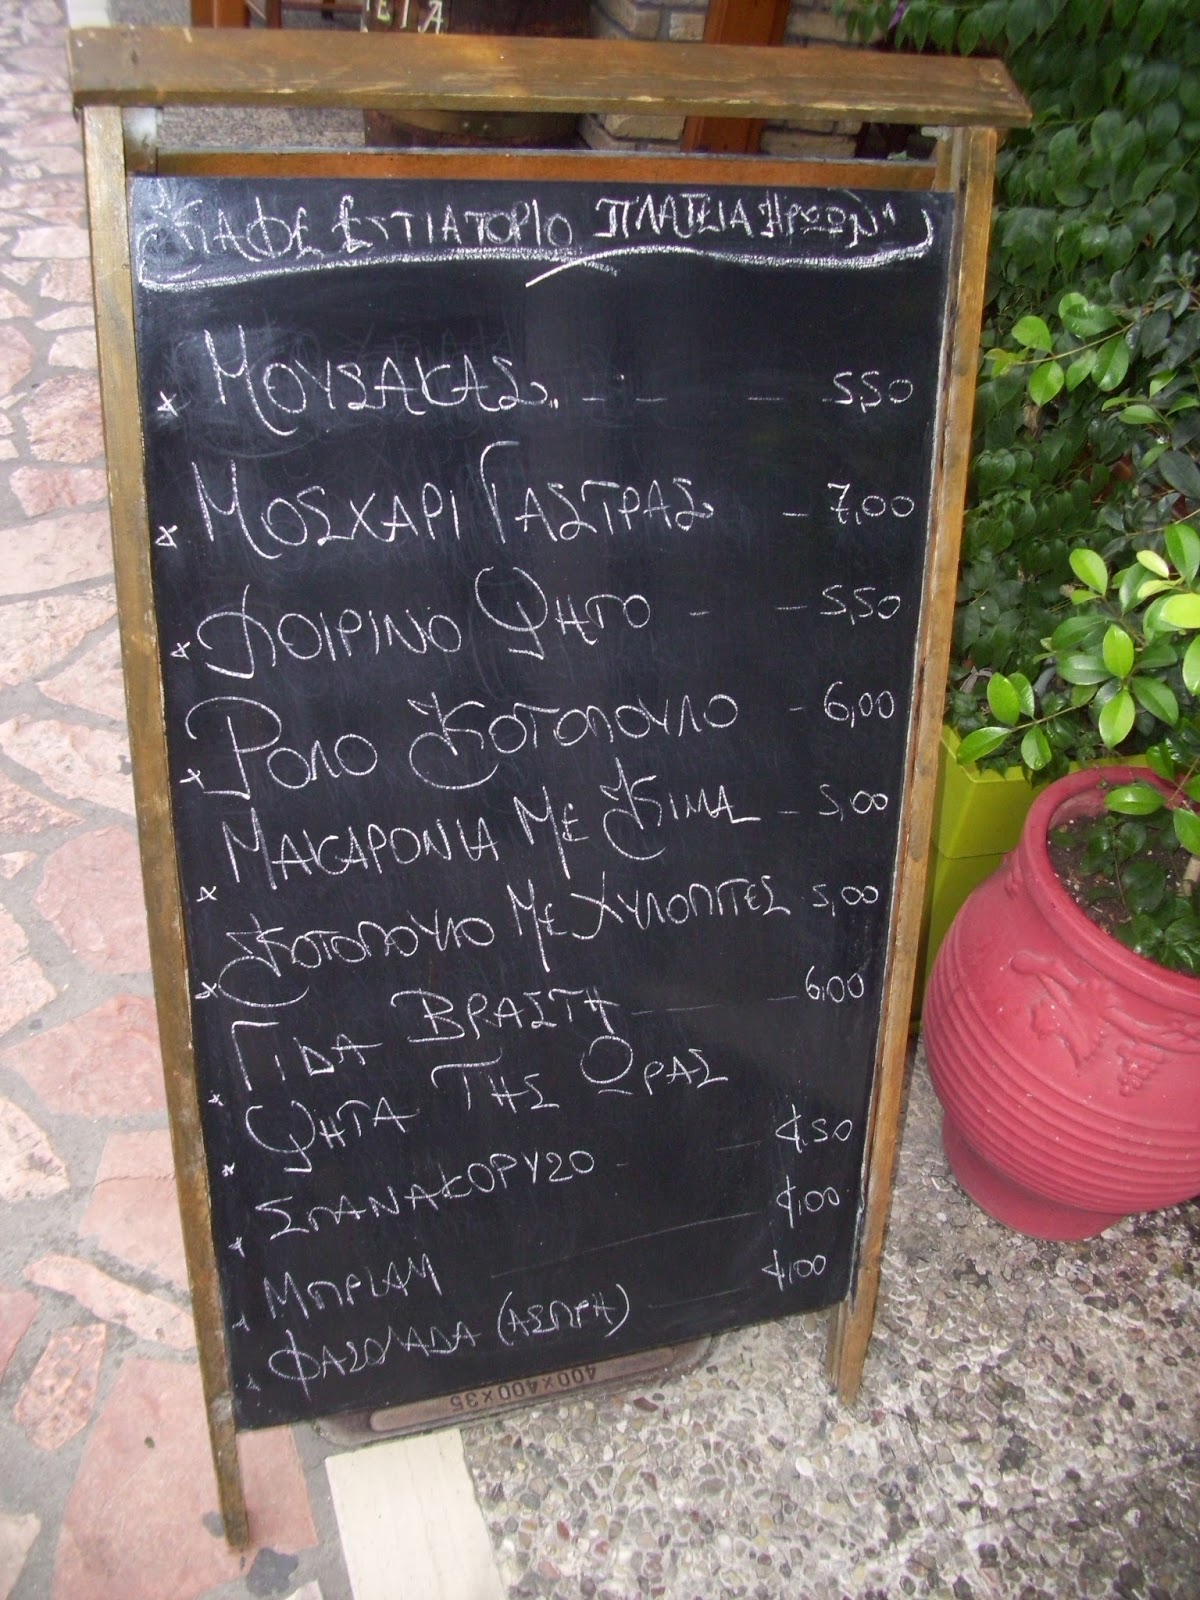 ΕΙΑ
ΚΑΦΕ ΕΣΤΙΑΤΟΡΙΟ "ΠΛΑΤΕΙΑ ΗΡΩΩΝ"
* ΜΟΥΣΑΚΑΣ.. - - - - 5,50
* ΜΟΣΧΑΡΙ ΓΑΣΤΡΑΣ - 7,00
* ΧΟΙΡΙΝΟ ΨΗΤΟ - - - 5,50
* ΡΟΛΟ ΚΟΤΟΠΟΥΛΟ - 6,00
* ΜΑΚΑΡΟΝΙΑ ΜΕ ΚΙΜΑ - 5,00
* ΚΟΤΟΠΟΥΛΟ ΜΕ ΧΥΛΟΠΙΤΕΣ 5,00
* ΓΙΔΑ ΒΡΑΣΤΗ - - 6,00
* ΨΗΤΑ ΤΗΣ ΩΡΑΣ
* ΣΠΑΝΑΚΟΡΥΖΟ - - 4,50
* ΜΠΡΙΑΜ - 4,00
* ΦΑΣΟΛΑΔΑ (ΑΣΠΡΗ) - 4,00
400x400x35